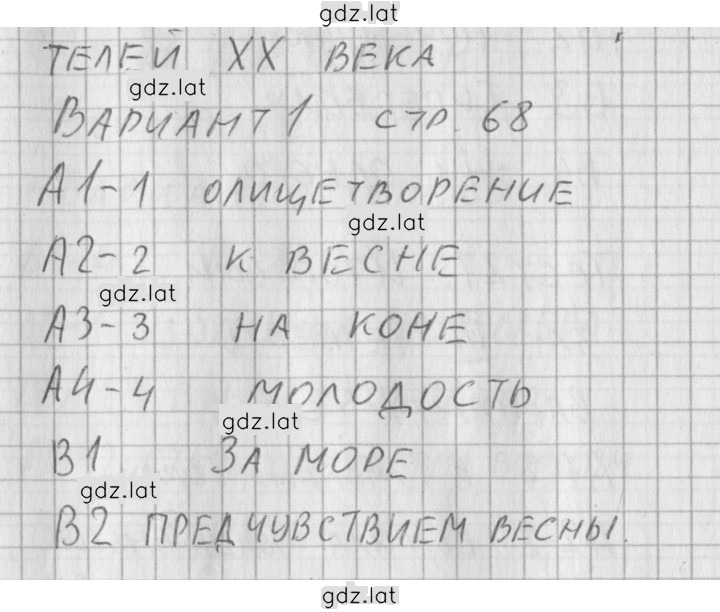 gdz.lat
ТЕЛЕЙ XX ВЕКА
gdz.lat
ВАРИАНТ 1 СТР. 68
А1-1 ОЛИЩЕТВОРЕНИЕ
gdz.lat
А2-2 К ВЕСНЕ
gdz.lat
А3-3 НА КОНЕ
А4-4 МОЛОДОСТЬ
gdz.lat
В1 ЗА МОРЕ
gdz.lat
В2 ПРЕДЧУВСТВИЕМ ВЕСНЫ.
gdz.lat